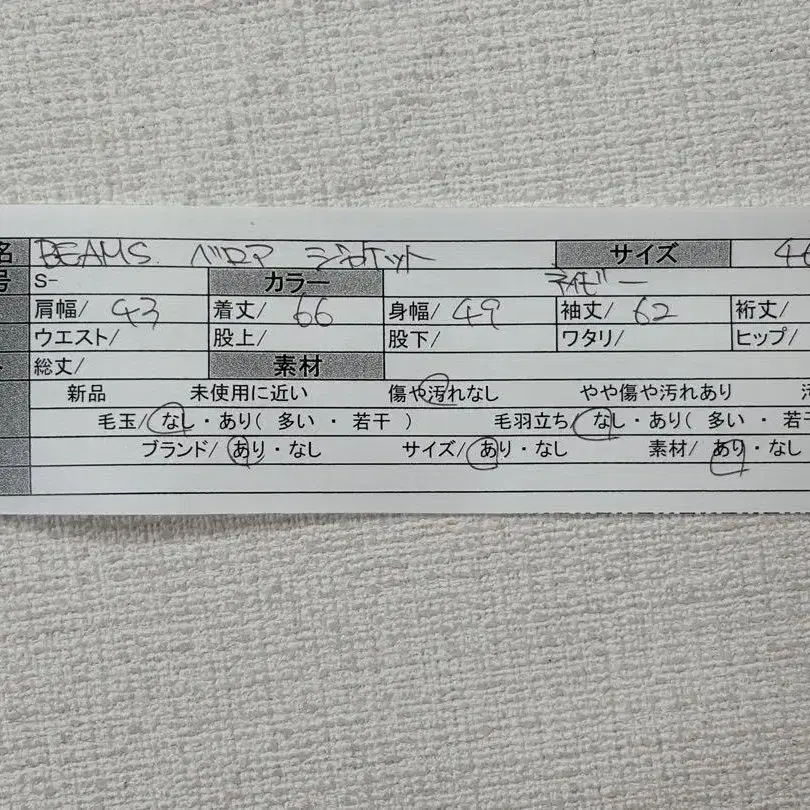 名 BEAMS ベロア ジャケット サイズ 46
号 S- カラー ネイビー
肩幅/ 43 着丈/ 66 身幅/ 49 袖丈/ 62 裄丈/
ウエスト/ 股上/ 股下/ ワタリ/ ヒップ/
総丈/ 素材
新品 未使用に近い 傷や汚れなし やや傷や汚れあり
毛玉/ なし・あり( 多い ・ 若干 ) 毛羽立ち/ なし・あり( 多い ・ 若干
ブランド/ あり・なし サイズ/ あり・なし 素材/ あり・なし